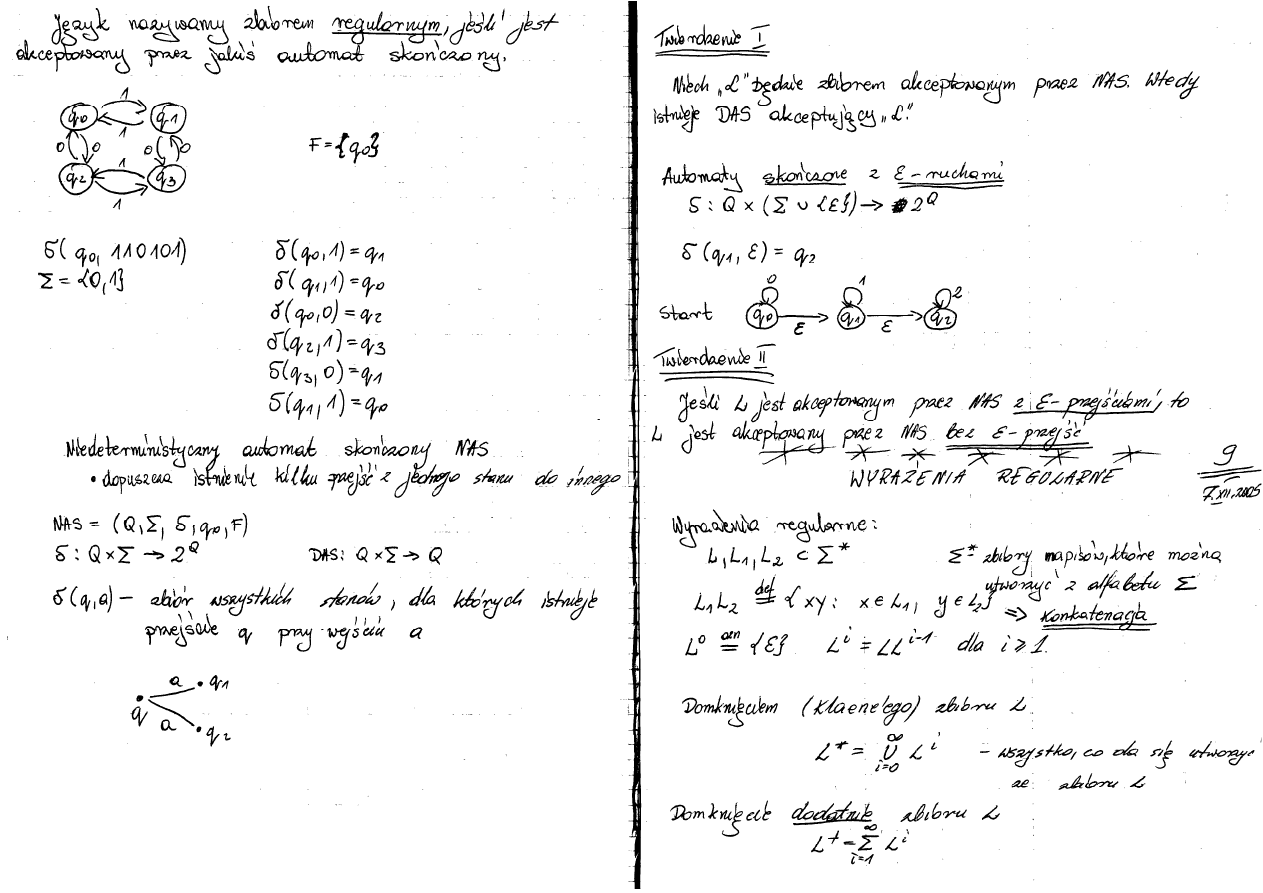 Język nazywamy zbiorem regularnym, jeśli jest
akceptowany przez jakiś automat skończony.
1
q0 q1
1
0 0 0 0
F = {q0}
1
q2 q3
1
δ(q0, 110101)
Σ = {0,1}
δ(q0,1)=q1
δ(q1,1)=q0
δ(q0,0)=q2
δ(q2,1)=q3
δ(q3,0)=q1
δ(q1,1)=q0
Niedeterministyczny automat skończony NAS
• dopuszcza istnienie kilku przejść z jednego stanu do innego
NAS = (Q, Σ, δ, q0, F)
δ : Q×Σ → 2^Q DAS: Q×Σ → Q
δ(q,a) – zbiór wszystkich stanów, dla których istnieje
przejście q przy wejściu a
a q1
q a q2
Twierdzenie I
Niech „L” będzie zbiorem akceptowanym przez NAS. Wtedy
istnieje DAS akceptujący „L”.
Automaty skończone z ε-ruchami
δ : Q × (Σ ∪ {ε}) → 2^Q
δ(q1, ε) = q2
0 1 2
Start q0 ε q1 ε q2
Twierdzenie II
Jeśli L jest akceptowanym przez NAS z ε-przejściami, to
L jest akceptowany przez NAS bez ε-przejść
WYRAŻENIA REGULARNE
9
7.XII.2005
Wyrażenia regularne:
L, L1, L2 ⊂ Σ*
Σ* – zbiory napisów, które można
utworzyć z alfabetu Σ
L1L2 def= {xy : x∈L1, y∈L2}
=> konkatenacja
L^0 = {ε} L^i = LL^i-1 dla i ≥ 1.
Domknięciem (Klaene'ego) zbioru L
L* = ∞ ∪ i=0 L^i – wszystko, co da się utworzyć
ze zbioru L
Domknięcie dodatnie zbioru L
L+ = ∞ Σ i=1 L^i